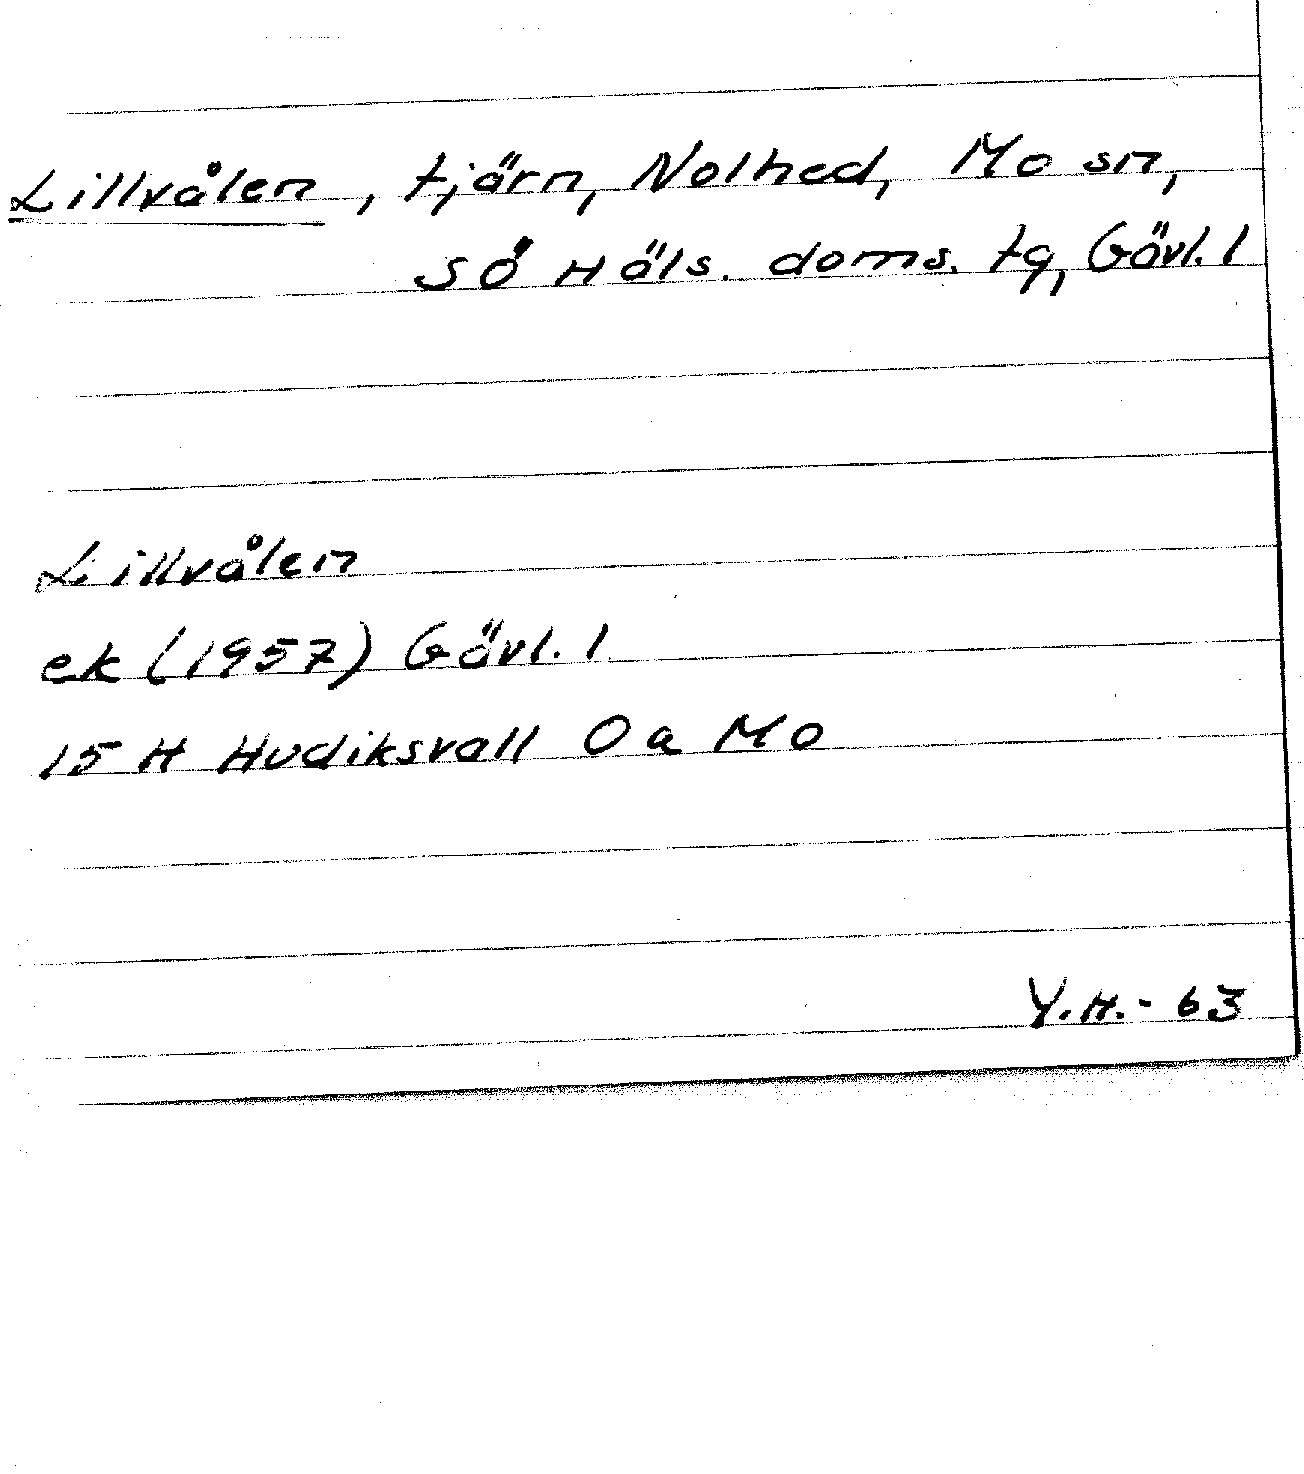 Lillvålen, tjärn, Nolhed, Mo sn,
SÖ Häls. doms. tg, Gävl. l
Lillvålen
ek (1957) Gävl. l
15 H Hudiksvall O a Mo
Y.H.- 63